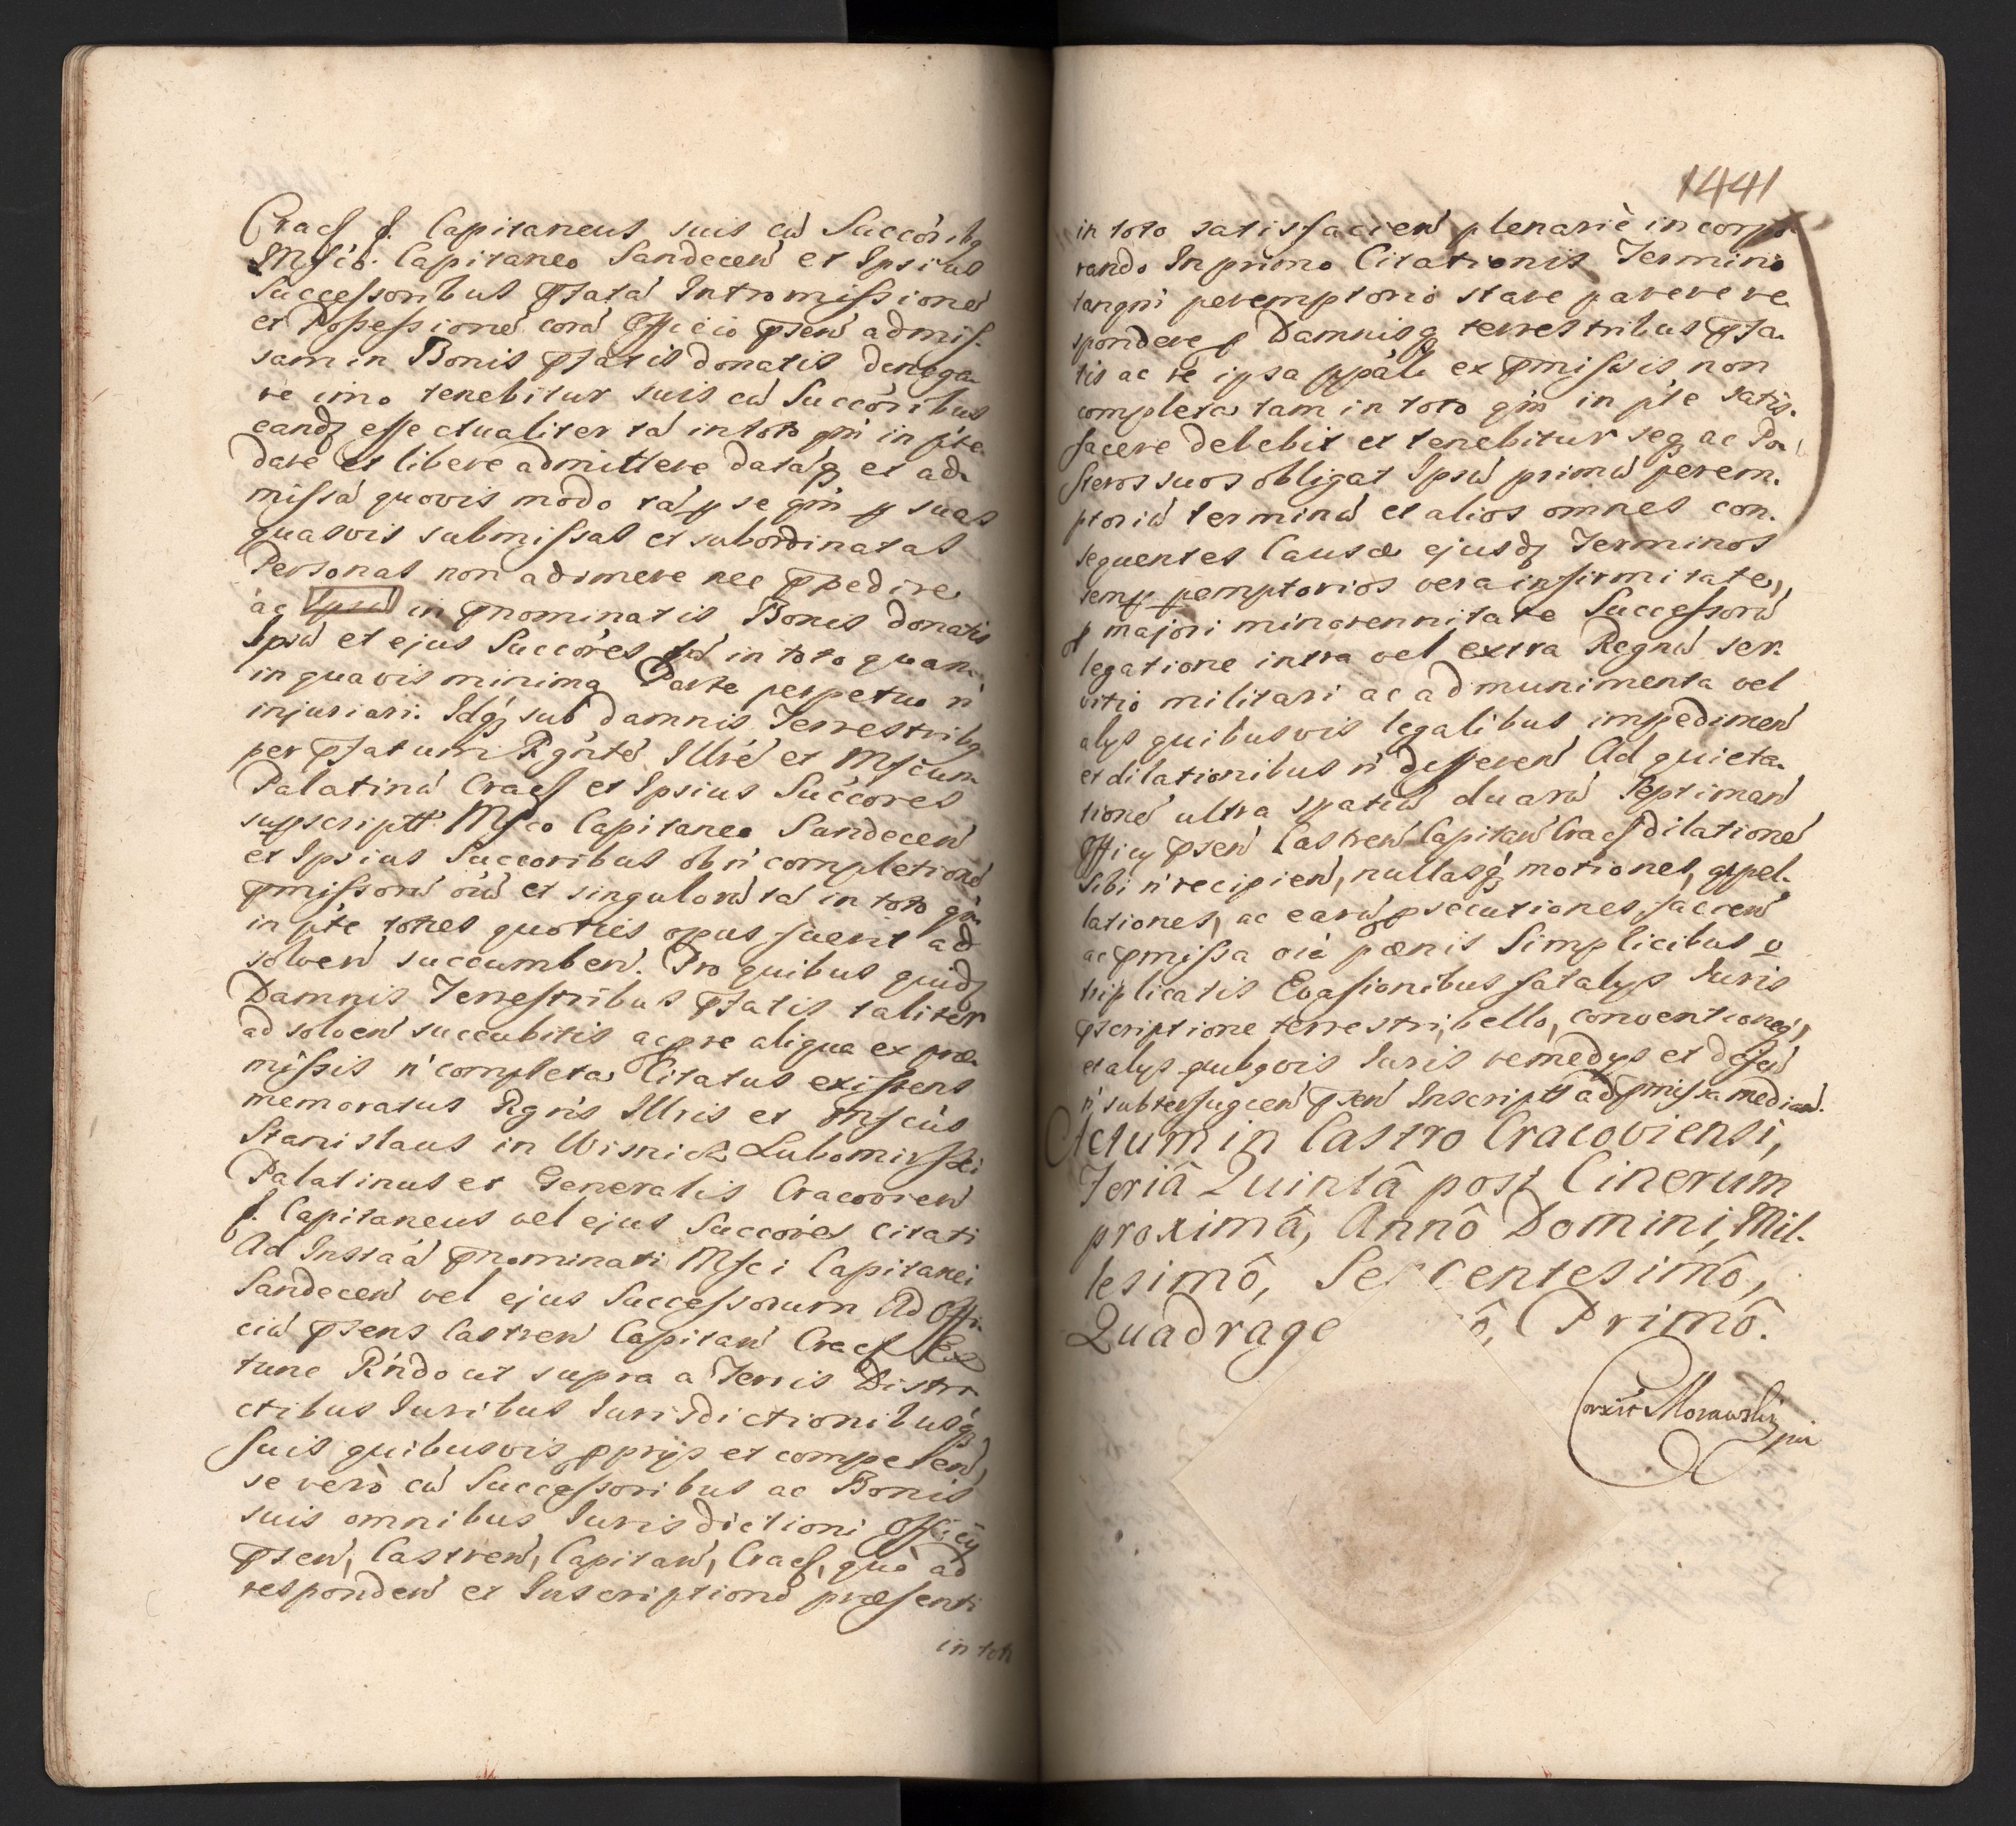 Cracś S. Capitaneus suis cū Succōribq
Msfcō. Capitaneo Sandeceń et Ipsius
Successoribus pſatā Intromissionē
et Possessionē corā Officio pſeń admis-
sam in Bonis pſatis donatis denega-
re imo tenebitur suis cū Succōribus
eandq effectualiter tā in toto qm̄ in pte
dare et libere admittere datāq et ad-
missā quovis modo tā p se qm̄ p suas
quasvis submissas et subordinatas
Personas non adimere nec ppedire
ac Ipsū in pnominatis Bonis donatis
Ipsū et ejus Succōres tā in toto quam
in quavis minima Parte perpetuo ń
injuriari. Idq sub damnis Terrestribq
per pſatum Rgntē Illrē et Mfcum
Palatinū Cracś et Ipsius Succōres
suprscriptt. Mfco Capitaneo Sandeceń
et Ipsius Succoribus ob ń completionē
pmissorū oiū et singulorū tā in toto qm̄
in pte toties quoties opus fuerit ad
solveń succumbeń. Pro quibus quidq
Damnis Terrestribus pſatis taliter
ad solveń succubitis ac pre aliqua ex præ-
missis ń completa Citatus existens
memoratus Rgńs Illris et Mfcus
Stanislaus in Wisnicz Lubomirski
Palatinus et Generalis Cracovień
S. Capitaneus vel ejus Succōres citati
Ad Instaā pnominati Mfci Capitanei
Sandeceń vel ejus Successorum Ad Offi-
ciū pſens Castreń Capitań Cracś Ex
tunc Rńdo ut supra a Terris Distri-
ctibus Iuribus Iurisdictionibusq
suis quibusvis pprijs et competeń
se verò cū Successoribus ac Bonis
suis omnibus Iurisdictioni Officij
pſeń, Castreń, Capitań, Cracś, quò ad
respondeń et Inscriptionē præsenti
in toto
1441
in toto satisfacień plenariè incorpo-
rando In primo Citationis Termino
tanqm̄ peremptorio stare parere re-
spondere p Damnisq terrestribus pſa-
tis ac re ipsa ppāli ex pmissis non
completa tam in toto qm̄ in pte satis-
facere debebit et tenebitur seq ac Po-
steros suos obligat Ipsū primū perem-
ptoriū terminū et alios omnes con-
sequentes Causæ ejusdq Terminos
semp pemptorios vera infirmitate,
p majori minorennitate Successorū
legatione intra vel extra Regnū ser-
vitio militari ac ad munimenta vel
alijs quibusvis legalibus impedimeń
et dilationibus ń differeń Ad quieta-
tionē ultra spatiū duarū Septimanń
Officij pſeń Castreń Capitań Cracś dilationē
sibi ń recipień, nullasq motiones, appel-
lationes, ac earū psecutiones facień
ac pmissa oiā pœnis Simplicibus v
triplicatis Evasionibus fatalijs Iuris
pscriptione terrestri, bello, conventioneq,
et alijs quibqvis Iuris remedijs et defeń
ń subterfugień pſeń Inscriptt ad pmissa median̄.
Actum in Castro Cracoviensi,
Feriâ Quintâ post Cinerum
proximâ, Annô Domini, Mil-
lesimô, Se centesimô,
Quadrage ô, Primô.
Corxit Morawski